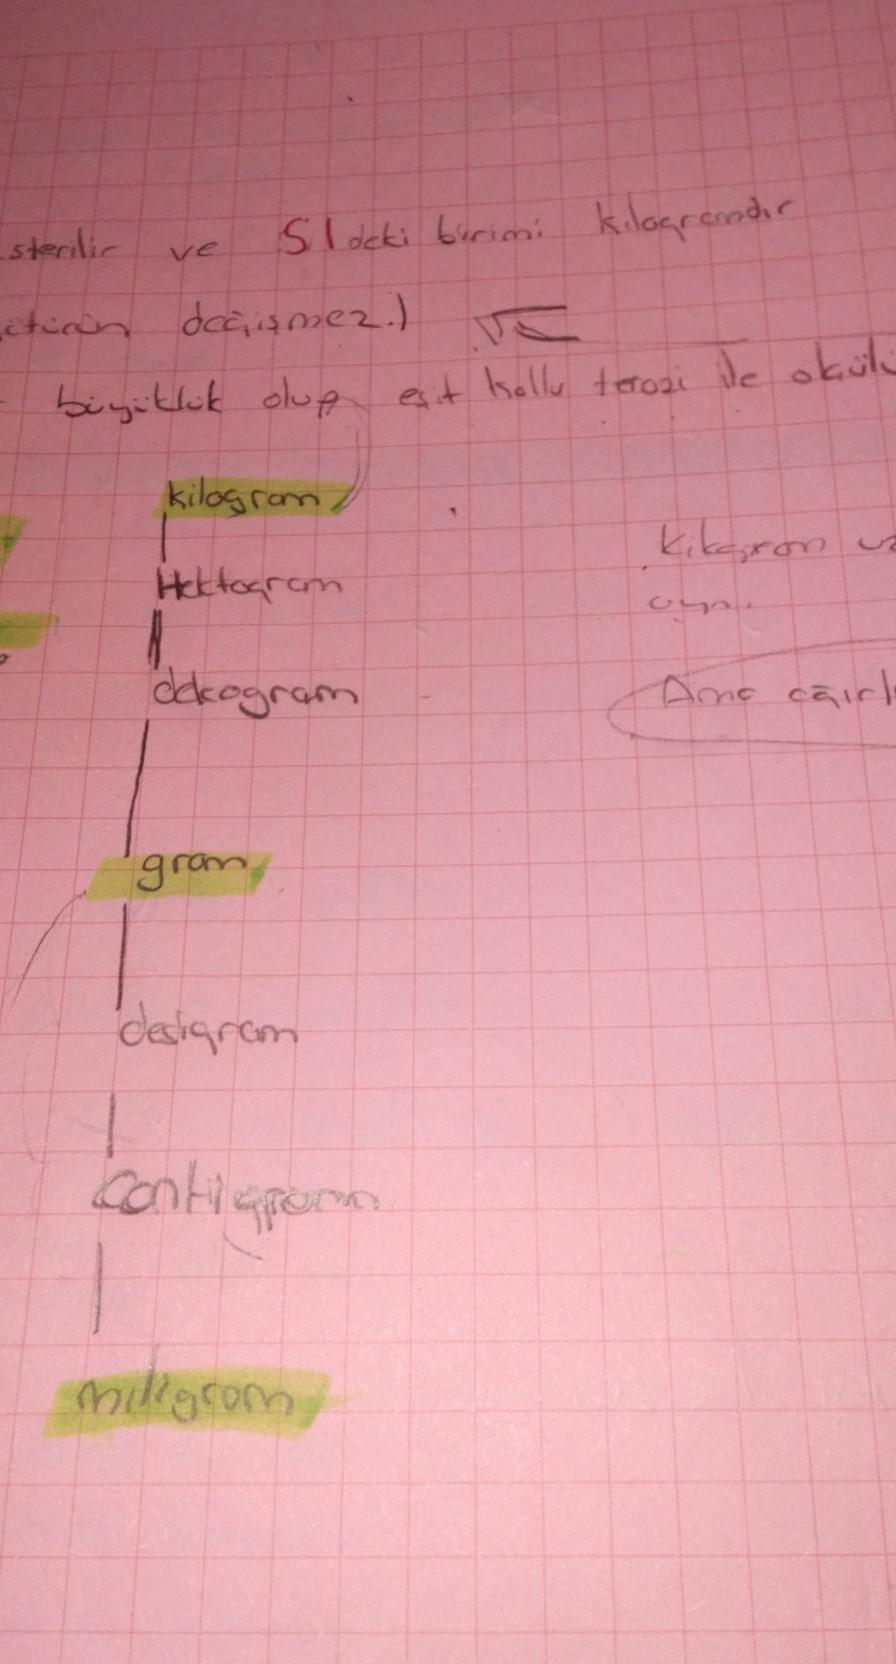 sterilir ve SI deki birimi kilogramdır
değişmez.)
büyüklük olup eşit kollu terazi ile
kilogram
Hektogram
dekagram
gram
desigram
Santigram
miligram
Kilogram
aynı.
Ama